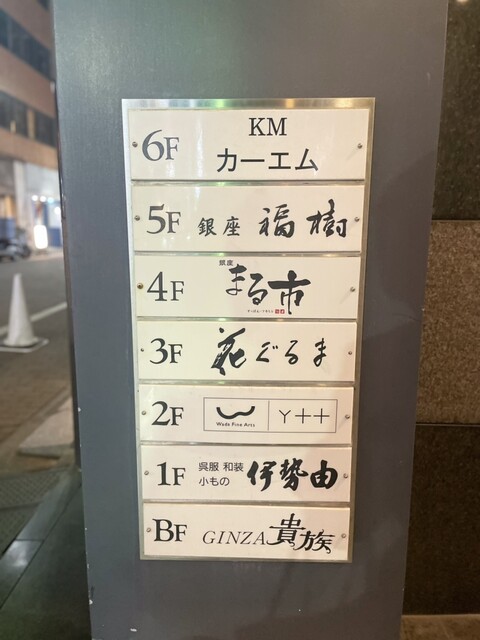 6F
KM
カーエム
5F 銀座 福樹
4F
銀座
まる市
3F 花ぐるま
2F Wada Fine Arts Y++
1F 呉服 和装
小もの 伊勢由
BF GINZA 貴族